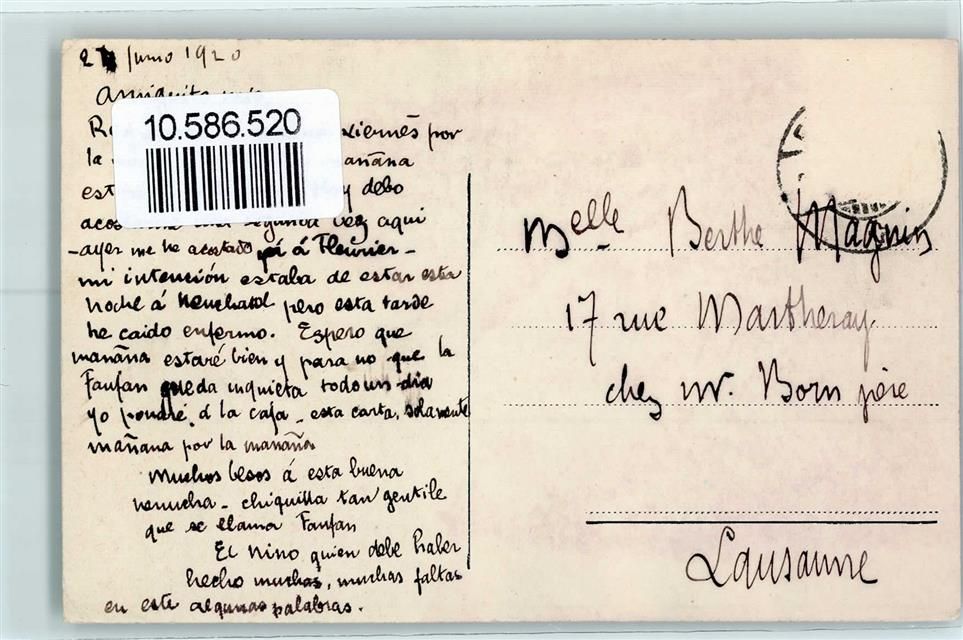 Junio 1920
10.586.520
viernes por
la
y debo
segunda vez aqui
- ayer me he acostado á Fleurier -
mi intención estaba de estar esta
noche á Neuchatel pero esta tarde
he caido enfermo. Espero que
manãna estaré bien y para no que la
Fanfan queda inquieta todo un dia
yo pondré d la caja - esta carta, solamente
mañana por la manãna
Muchos besos á esta buena
nenucha - chiquilla tan gentile
que se llama Fanfan
El Nino quien debe haber
hecho muchas, muchas faltas
en este algunas palabras.
Melle Berthe Magnin
17 rue Martheray
chez Mr. Born père
Lausanne